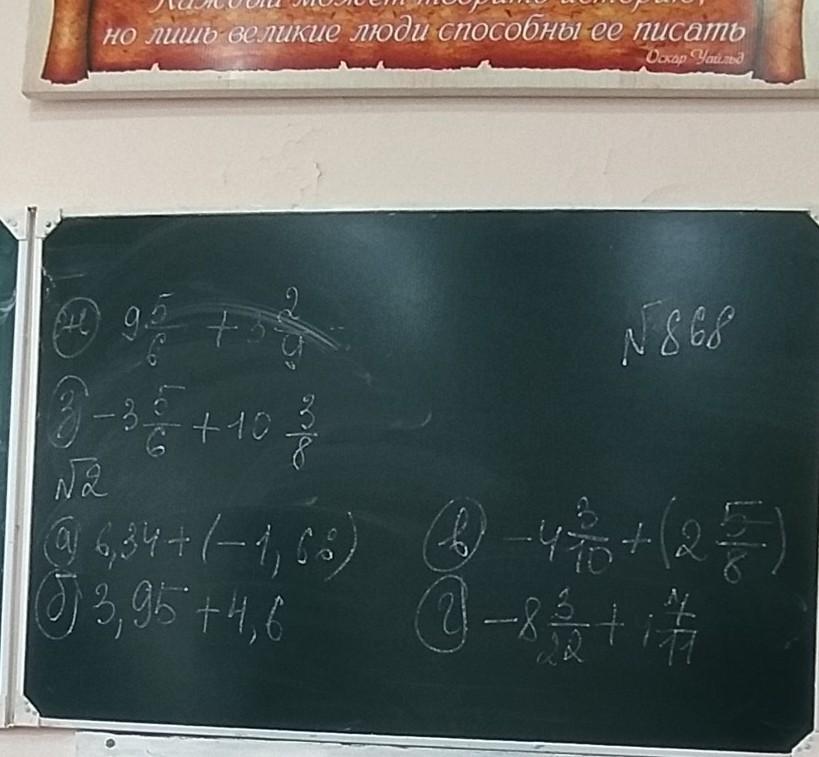 Каждый может творить историю,
но лишь великие люди способны ее писать
Оскар Уайльд
ж) 9 5/6 + 3 2/9
№868
з) -3 5/6 + 10 3/8
№2
а) 6,34 + (-1,68)
в) -4 3/10 + (2 5/8)
б) 3,95 + 4,6
г) -8 3/22 + 1 4/11